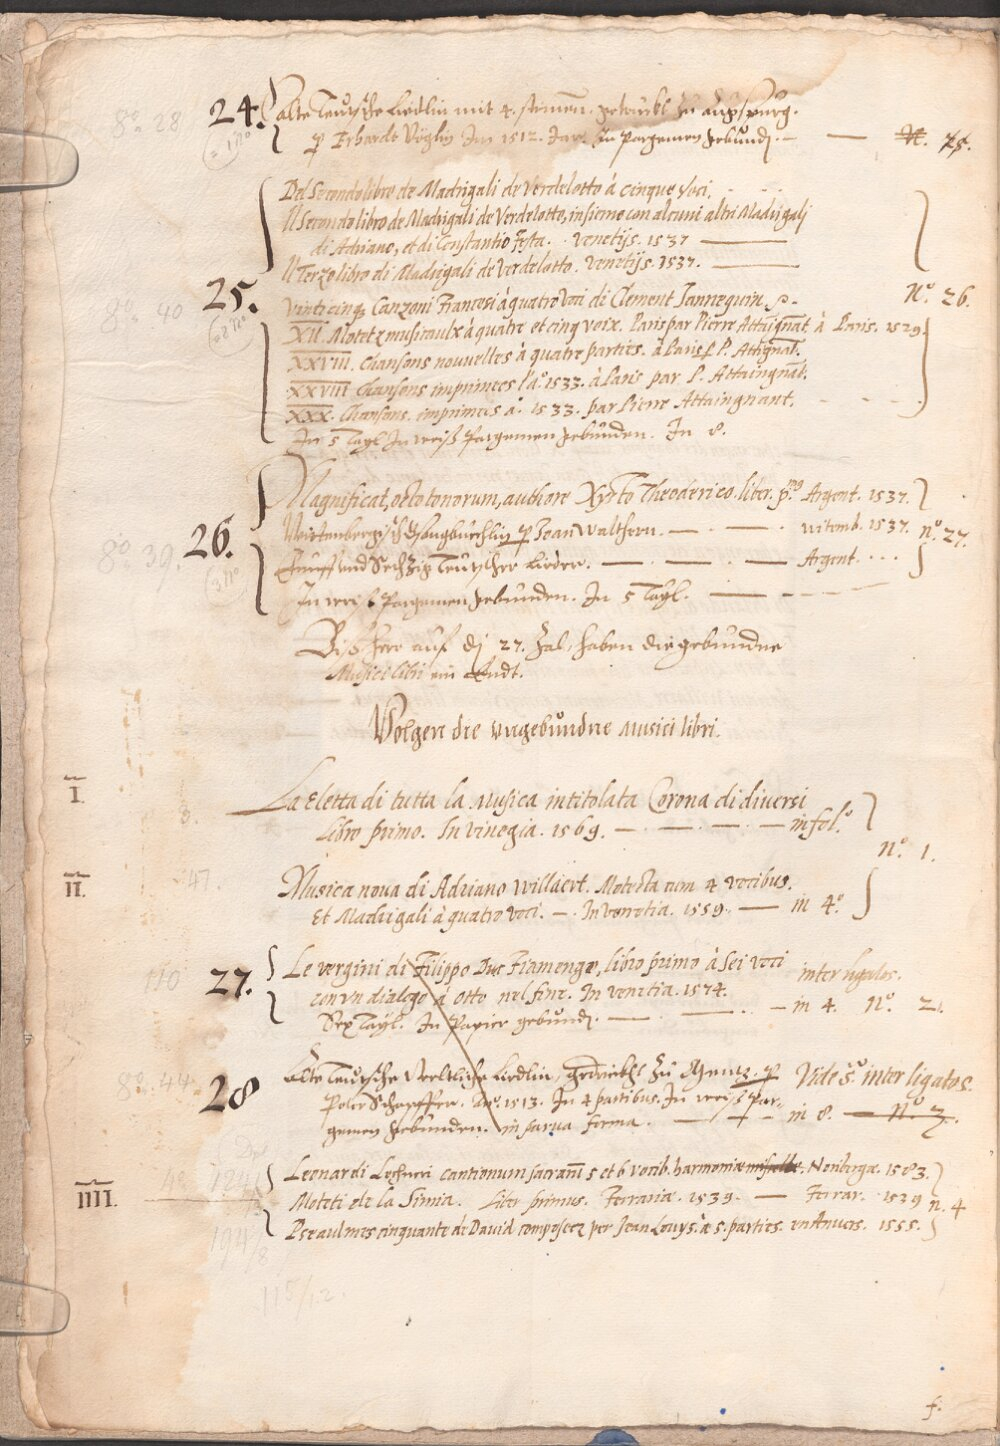 24. Alte Teutsche Liedlin mit 4. stimen. getruckt zu augspurg.
8o. 28
p Erharde Öglin Im 1512. Jar. In Pargemen gebund. — — 25.
Del Secondo libro de Madrigali de Verdelotto à cinque voci.
Il Secondo libro de Madrigali de Verdelotto, insieme con alcuni altri Madrigali
di Adriano, et di Constantio Festa. Venetijs. 1537 —
Il Terzo libro di Madrigali de Verdelotto. Venetijs. 1537. —
25. Vinticinq Canzoni Francesi à quatro voci di Clement Jannequin. No. 26.
8o. 40
XII. Motetz musicaulx à quatre et cinq voix. Paris par Pierre Attaignat. à Paris. 1529
XXVIII. Chansons nouvelles à quatre parties. à Paris P. Attignat.
XXVIII Chansons imprimees l'ao. 1533. à Paris par P. Attaingnat.
XXX. Chansons. imprimeis a. 1533. par Pierre Attaingnant.
In 5 Tayl In weiß Pargemen gebunden. In 8.
Magnificat, octo tonorum, authore Xysto Theoderico. liber. pmo. Argent. 1537.
26. Wirtenbergisch Gsangbuechlin p Joan Walthern. — . — . vitemb. 1537. no. 27.
8o. 39.
Fünff und Sechzig Teütscher Lieder. — . — . — . — Argent. . . .
In weiß Pargemen gebunden. In 5 Tayl. —
Biß her auf dj 27. Zal, haben die gebundne
Musici libri ein Endt.
Volgen die ungebundne Musici libri.
I. La Eletta di tutta la Musica intitolata Corona di diversi
Libro primo. In Vinegia. 1569. — . — . — . — in folo.
No. 1.
II. 47. Musica nova di Adriano Willaert. Motecta cum 4 vocibus.
Et Madrigali à quatro voci. — . In Venetia. 1559. — in 4o.
27. Le vergini di Filippo Duc Fiamengo, libro primo à Sei voci inter ligatos.
110
con un dialogo à otto nel fine. In Venetia. 1574. — in 4. No. 2.
Sex Tayl. In Papier gebund. — . — . .
28 Alte Teutsche Weltliche Liedlin, gedruckht zu Mentz. p Vide s. inter ligatos.
8o. 44.
Peter Schoeffer. Ao. 1513. In 4 partibus. In weiß Par- in 8. — No. 3.
gemen gebunden. in parva forma. —
IIII. Leonardi Lechneri cantionum sacrarum 5 et 6 vocib. harmoniæ misselle. Noribergæ. 1583.
Moteti de la Simia. Liber primus. Ferrariæ. 1539. — Ferrar. 1539 n. 4
Pseaulmes cinquante de David composeez per Jean Louys. à 5. parties. en Anvers. 1555.
115/12.
f.